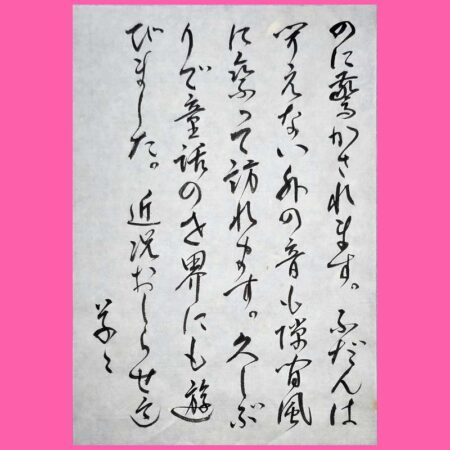 のに驚かされます。ふだんは
聞えない外の音も隙間風
に乗って訪れます。久しぶ
りで童話のせ界にも遊
びました。近況おしらせ迄
草々